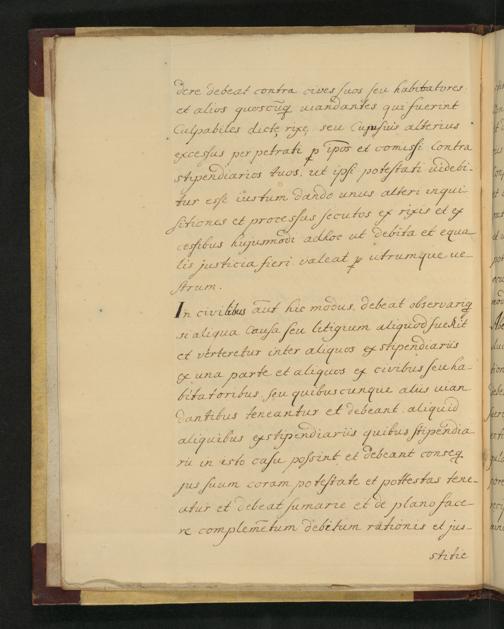 dere debeat contra cives suos seu habitatores
et alios quoscūq viandantes qui fuerint
Culpabiles dicte rixe, seu Cujusvis alterius
excessus perpetrati p ipōs et comissi contra
stipendiarios tuos, ut ipsi potestati videbi-
tur esse iustum dando unus alteri inqui-
sitiones et processus secutos ex rixis et ex
cessibus hujusmōdi adhoc ut debita et equa
lis justicia fieri valeat p utrumque ve-
strum.
In civilibus aūt hic modus, debeat observariq
si aliqua Causa seu litigium aliquod fuerit
et verteretur inter aliquos ex stipendiariis
ex una parte et aliquos ex civibus seu ha-
bitatoribus, seu quibuscunque aliis vian
dantibus teneantur et debeant, aliquid
aliquibus ex stipendiariis quibus stipendia
rii in isto casu possint et debeant conseq
jus suum coram potestate et pottestas tene-
atur et debeat sumarie et de plano face-
re complemētum debitum rationis et jus-
stitie